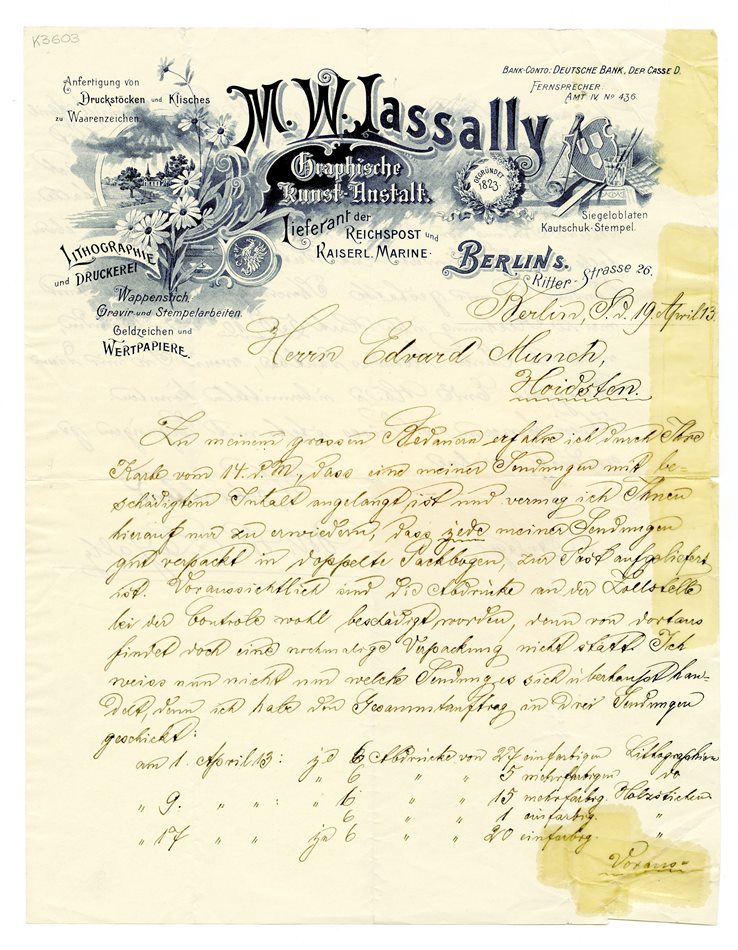 K3603
Anfertigung von
Druckstöcken und Klisches
zu Waarenzeichen.
M. W. Lassally
Graphische
Kunst-Anstalt.
Bank-Conto: Deutsche Bank, Dep. Casse D.
Fernsprecher:
Amt IV. No 436.
Gegründet
1823.
Lieferant der
Reichspost und
Kaiserl. Marine.
Siegeloblaten
Kautschuk-Stempel.
Lithographie
und Druckerei
Wappenstich.
Gravir- und Stempelarbeiten.
Geldzeichen und
Wertpapiere.
Berlin S.
Ritter-Strasse 26.
Berlin, S. d. 19. April 13
Herrn Edvard Munch,
Hvidsten.
Zu meinem grossen Bedauern erfahre ich durch Ihre
Karte vom 14. d. M, dass eine meiner Sendungen mit be-
schädigtem Inhalt angelangt ist und vermag ich Ihnen
hierauf nur zu erwiedern, dass jede meiner Sendungen
gut verpackt in doppelte Packbogen, zur Post aufgeliefert
ist. Voraussichtlich sind die Abdrücke an der Zollstelle
bei der Controle wohl beschädigt worden, denn von dortaus
findet doch eine nochmalige Verpackung nicht statt. Ich
weiss nun nicht um welche Sendung es sich überhaupt han-
delt, denn ich habe den Gesammtauftrag in drei Sendungen
geschickt:
am 1. April 13: je 6 Abdrücke von 27 einfarbigen Lithographien
" 6 " " 5 mehrfarbigen do
" 9. " " : " 6 " " 15 mehrfarbg. Holzstichen
6 " " 1 einfarbig. "
" 17 " " je 6 " " 20 einfarbg. "
Voraus-